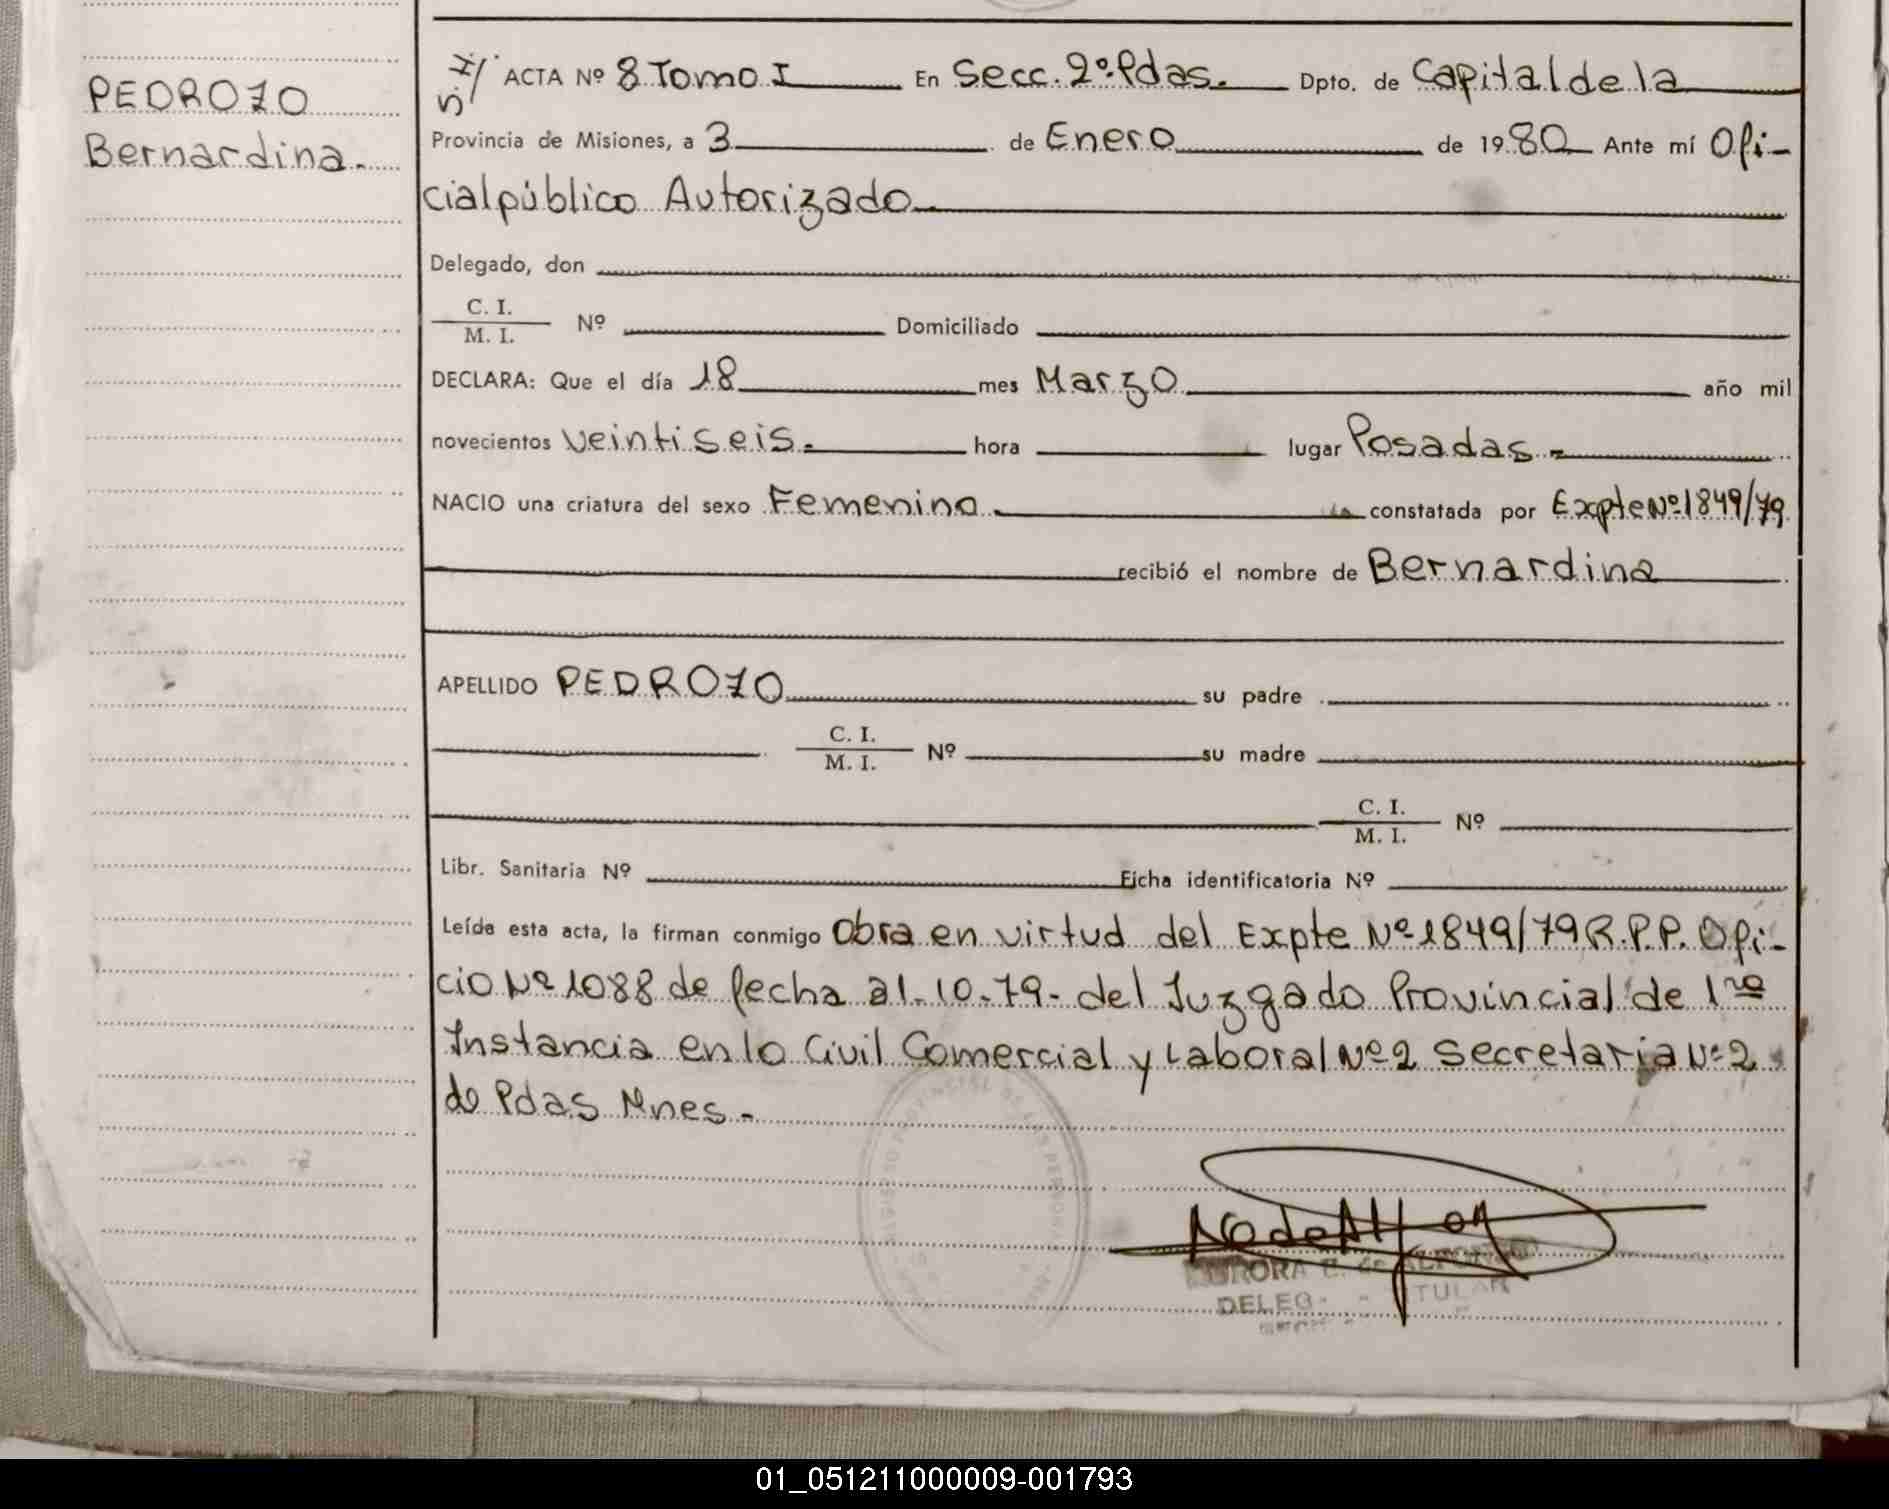 PEDROZO
Bernardina.
S/I. ACTA Nº 8 Tomo I En Secc. 2º Pdas. Dpto. de Capital de la
Provincia de Misiones, a 3 de Enero de 1980 Ante mí Ofi-
cial público Autorizado
Delegado, don
C. I.
M. I. Nº Domiciliado
DECLARA: Que el día 18 mes Marzo año mil
novecientos veintiseis. hora lugar Posadas.-
NACIO una criatura del sexo Femenino. constatada por Expte Nº 1849/79
recibió el nombre de Bernardina
APELLIDO PEDROZO su padre
C. I.
M. I. Nº su madre
C. I.
M. I. Nº
Libr. Sanitaria Nº Ficha identificatoria Nº
Leída esta acta, la firman conmigo Obra en virtud del Expte Nº 1849/79 R.P.P. Ofi-
cio Nº 1088 de fecha 31-10-79- del Juzgado Provincial de 1ra
Instancia en lo Civil Comercial y Laboral Nº 2 Secretaria Nº 2
de Pdas Mnes.-
AURORA E. de ALFONSO
DELEG TITULAR
01_051211000009-001793